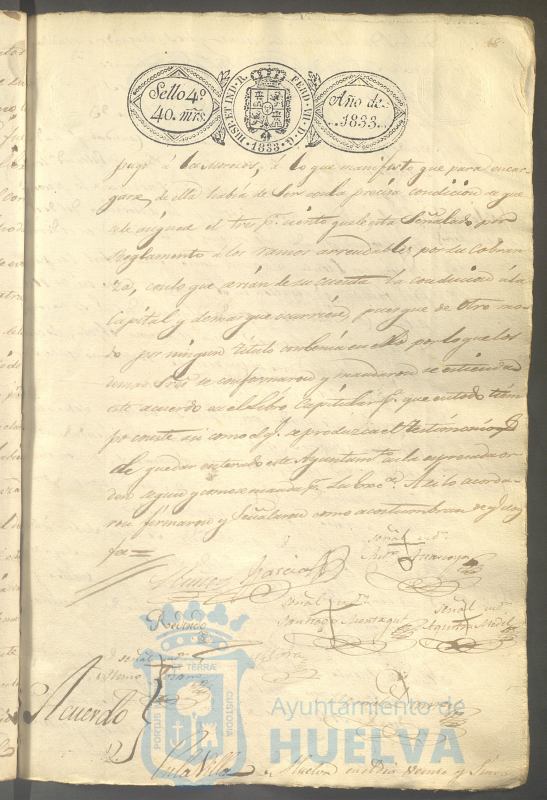 Sello 4º
40. mrs.
HISP. ET IND. R. FERD. VII. D. G. 1833
Año de
1833.
pago á los mismos, á lo que manifesto que para encar
garse de ella habia de ser con la precisa condicion de que
se le asigne el tres p. ciento que esta señalado por
Reglamento á los ramos arrendables por su cobran
za, con lo que serian de su cuenta la conduccion á la
Capital y demas que ocurriere, pues que de otro mo
do por ningun titulo combenia en ello por lo que los
demas Sres se conformaron y mandaron se estienda
este acuerdo en el Libro Capitular p. que en todo tiem
po conste asi como el q. se produzca el testimonio
de quedar enterado este Ayuntamto en la espresada or
den segun y como se manda p. Su Exca. Asi lo acorda
ron firmaron y Señalaron como acostumbran de q. doy
fee=
Garcia
Señal
Señal
Santiago
Señal
Agustin
Redondo
Señal
Acuerdo
En la Villa de Huelva en el dia veinte y
PORTUS TERRAE CUSTODIA
Ayuntamiento de
HUELVA